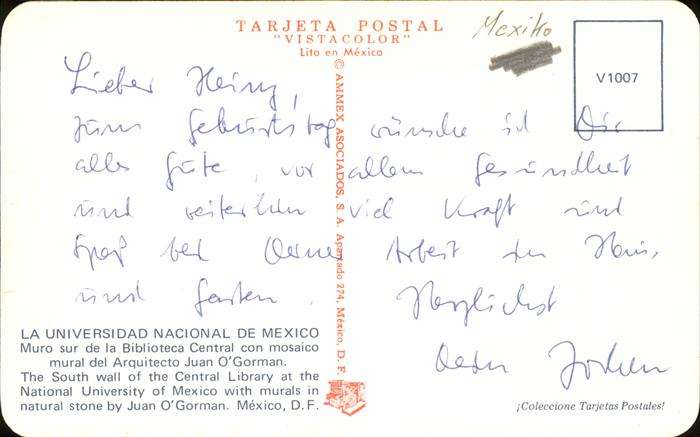 TARJETA POSTAL
"VISTACOLOR"
Lito en México
Mexiko
V1007
Lieber Heinz,
zum Geburtstag wünsche ich Dir
alles Gute, vor allem Gesundheit
und weiterhin viel Kraft und
Spaß bei Deiner Arbeit in Haus
und Garten. Herzlichst
Dein Jochen
© AMMEX ASOCIADOS, S. A. Apartado 274, México, D. F.
LA UNIVERSIDAD NACIONAL DE MEXICO
Muro sur de la Biblioteca Central con mosaico
mural del Arquitecto Juan O'Gorman.
The South wall of the Central Library at the
National University of Mexico with murals in
natural stone by Juan O'Gorman. México, D.F.
¡Coleccione Tarjetas Postales!